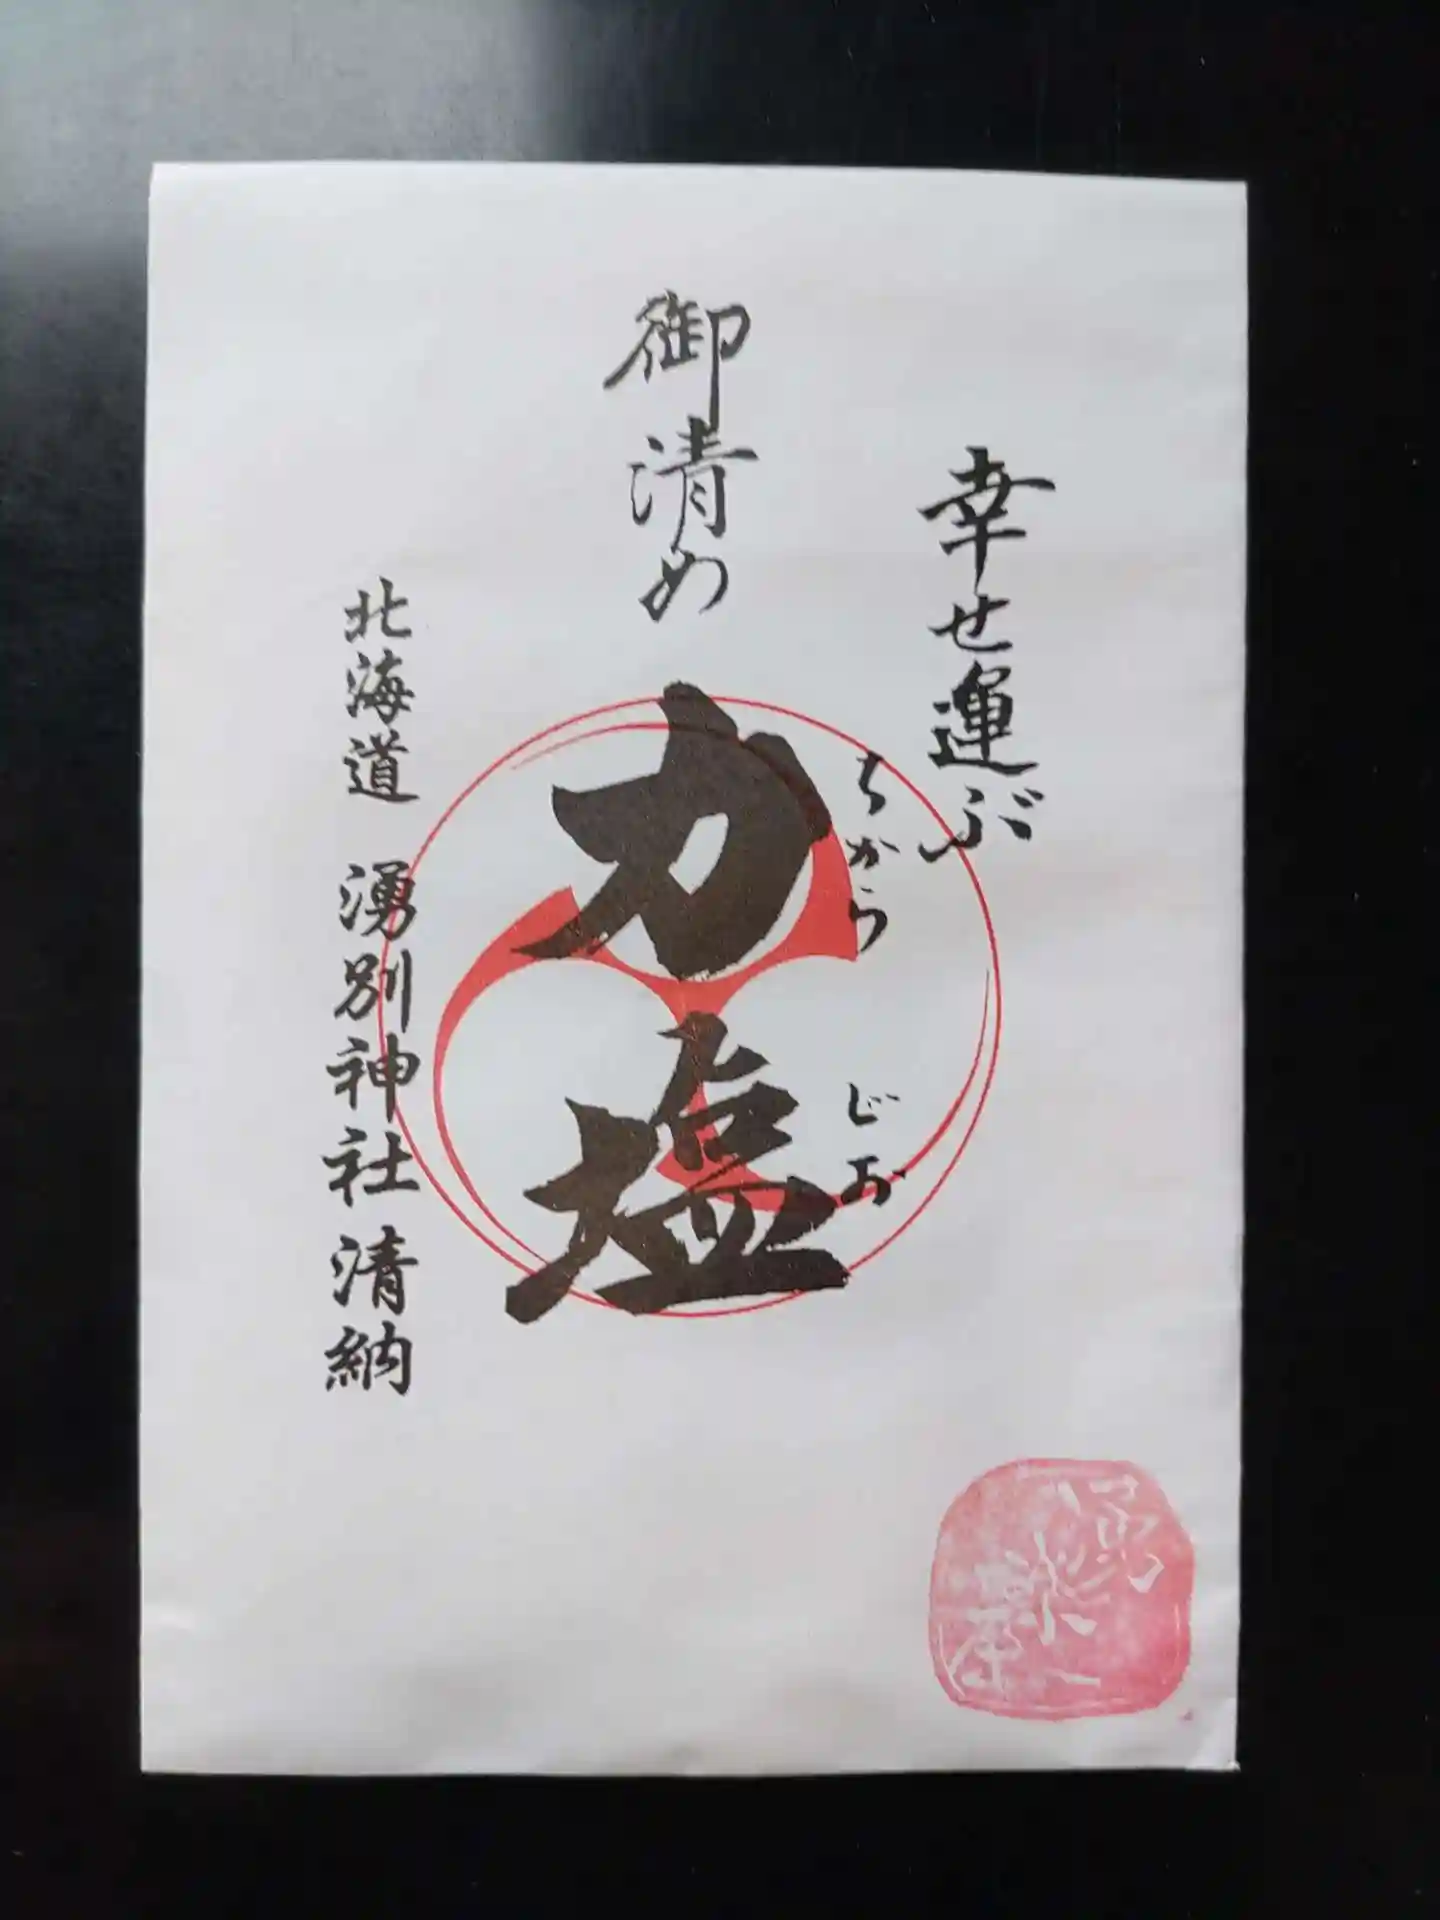 幸せ運ぶ
御清め
力塩
ちからじお
北海道 湧別神社 清納